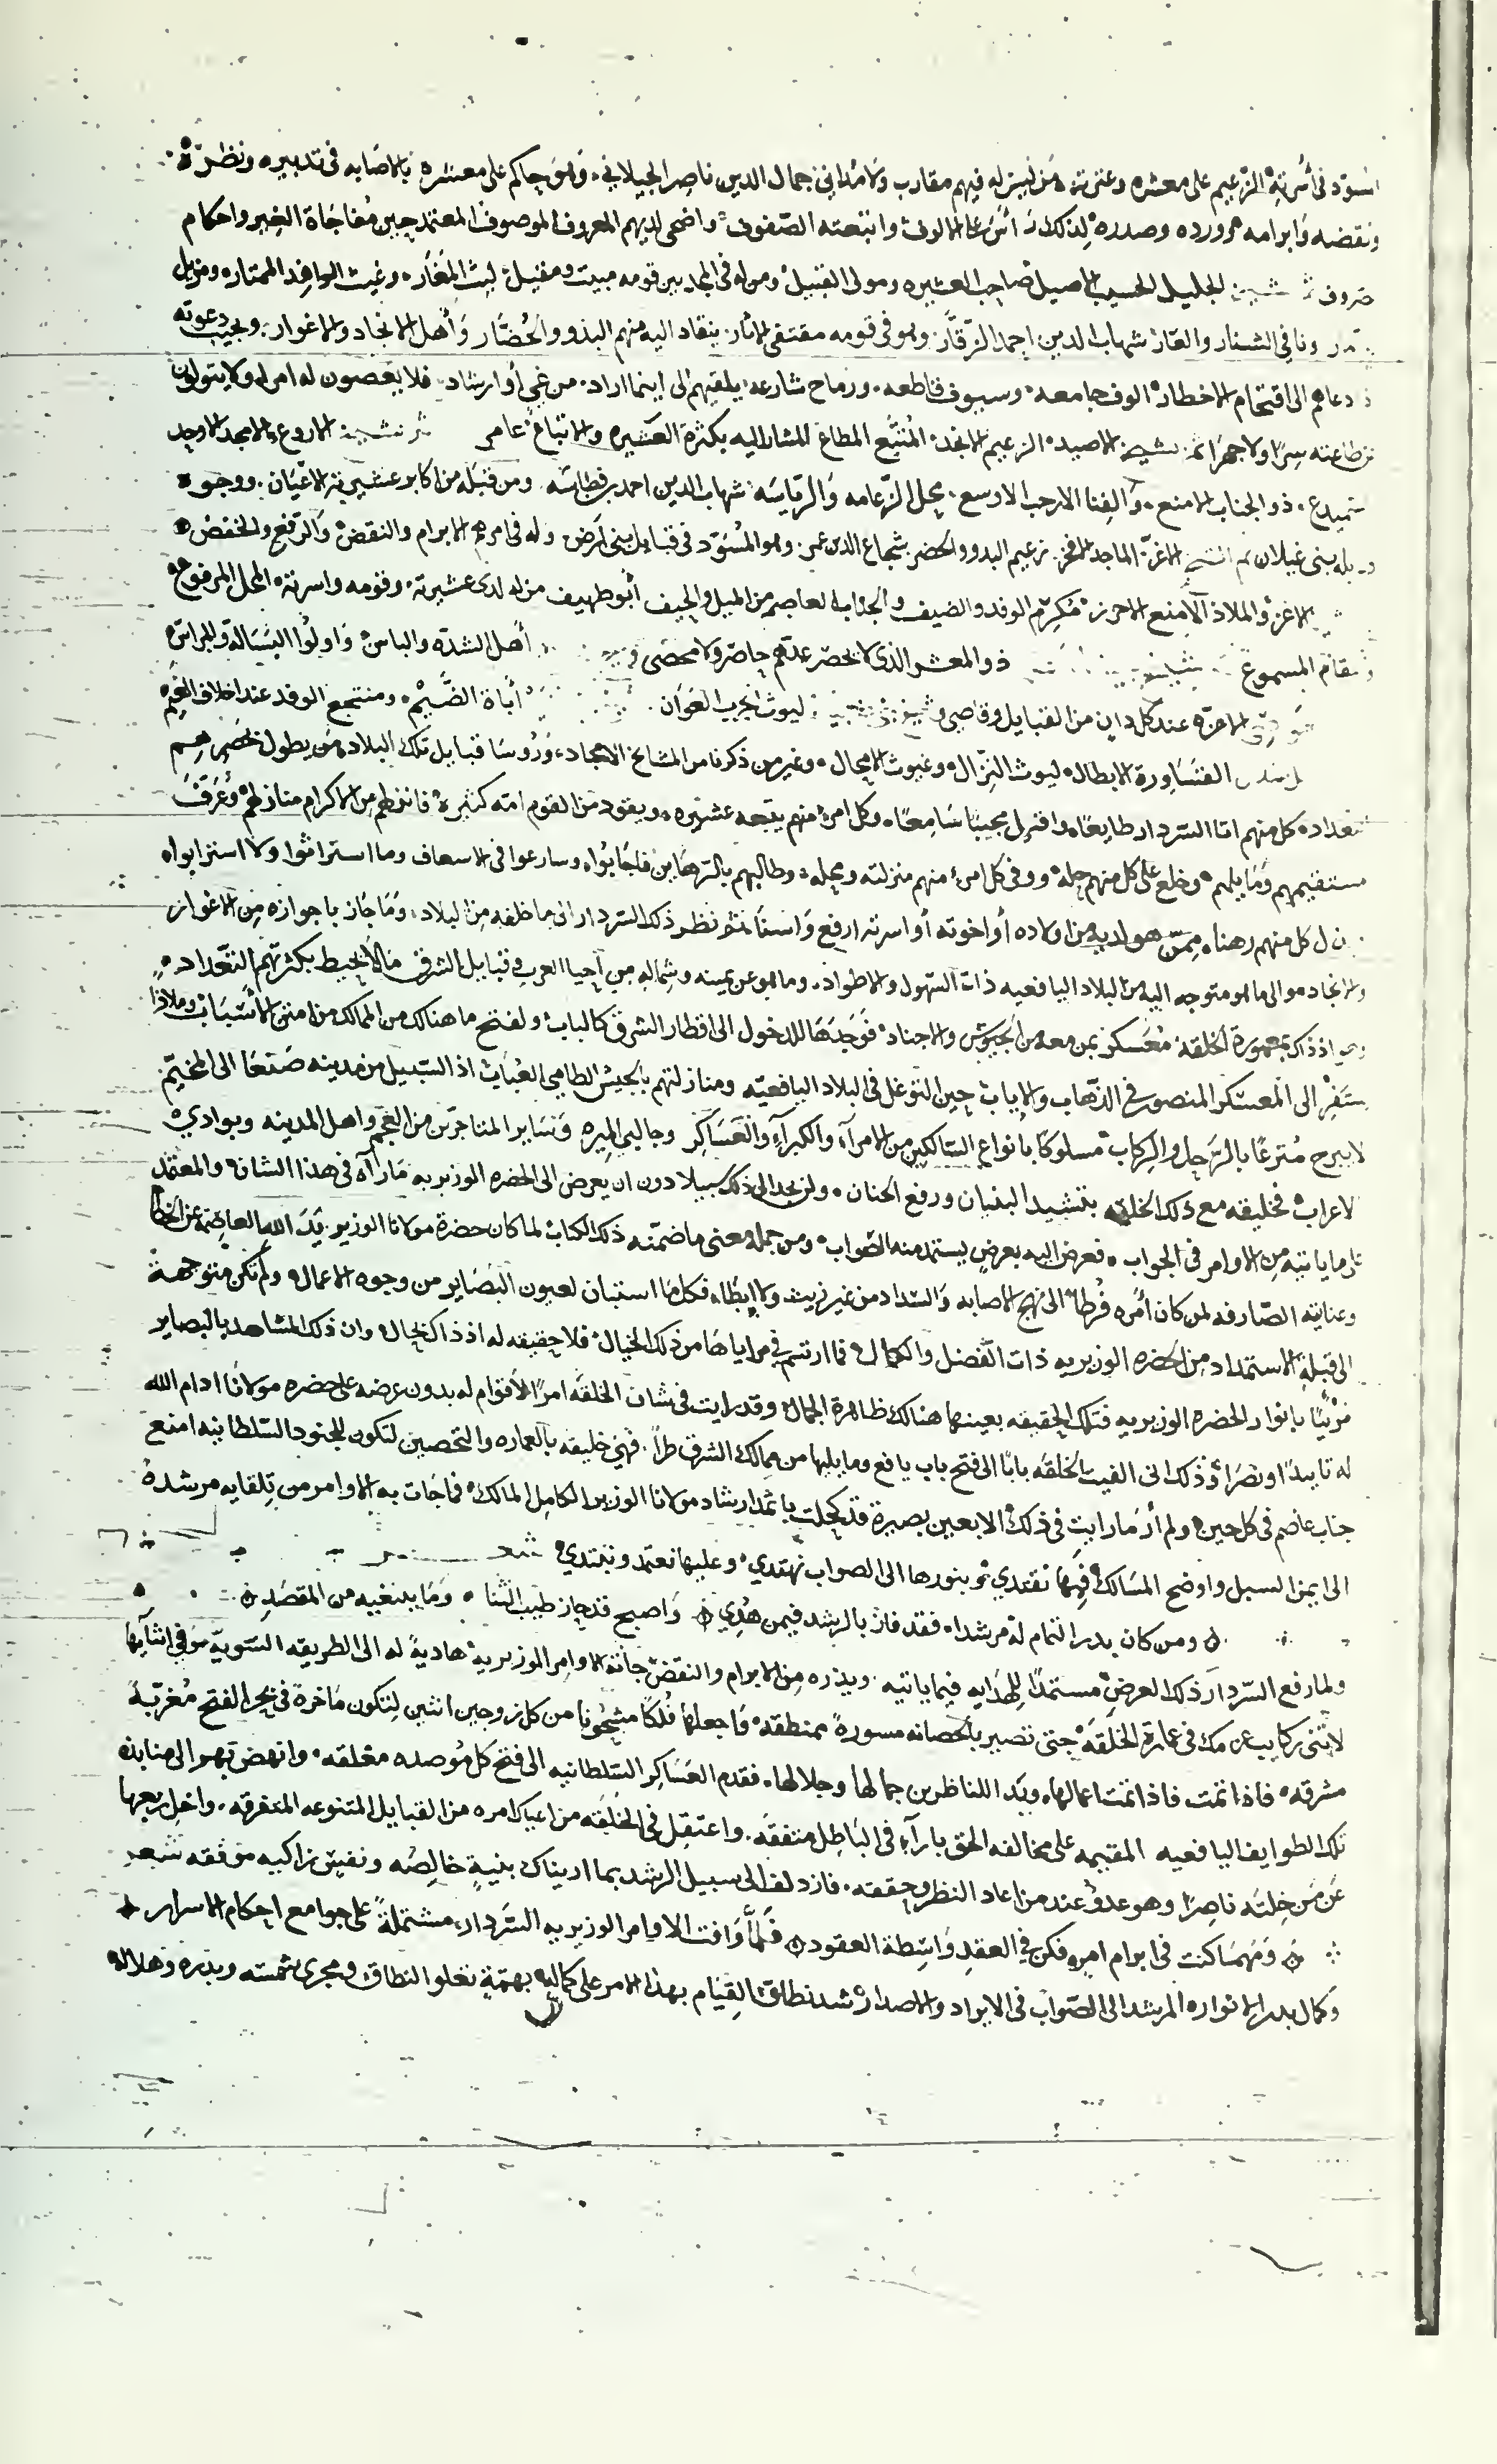 اسود في أسرته الزعيم على معشره وعترته من ليس له فيهم مقارب ولا مداني جمال الدين ناصر الجيلاني وهو حاكم على معشره بالاصابه في تدبيره ونظره
ونقضه وابرامه وورده وصدره لذلك رأس على الالوف واتبعته الصفوف واضحى لديهم المعروف الموصوف المعتمد حين مفاجاة الغير واحكام
صروف الجليل الحسيب الاصيل صاحب العشيره ومولى القبيل ومن له في المجد بين قومه مبيت ومقيل ليث المغار وغيث الوافد الممتار ومزيل
ونافي الشنار والعار شهاب الدين احمد الزقار وهو في قومه مقتفى الاثار ينقاد اليه منهم البدو والحضار وأهل الانجاد والاغوار ويجيب دعوته
دعاهم الى اقتحام الاخطار الوف جامعه وسيوف قاطعه ورماح شارعه يلقيهم الى اينما اراد من غي أو ارشاد فلا يعصون له امرا ولا يتولون
عن طاعته سرا ولا جهرا ثم الشيخ الاصيد الزعيم الانجد المتبع المطاع المشار اليه بكثرة العشيره والاتباع عامر الاروع والامجد الاوحد
ذو الجناب الامنع والفنا الارحب الاوسع محل الزعامه والرياسه شهاب الدين احمد بن قطاشه ومن قبله من اكابر عشيرته الاعيان ووجوه
بني غيلان ثم الشيخ الاغر الماجد الافخر زعيم البدو والحضر شجاع الدين عمر وهو المسود في قبايل بني أرض وله في امرهم الابرام والنقض والرفع والخفض
الاعز والملاذ الامنع الاحرز مكرم الوفد والضيف والجناب العاصم من الميل والحيف أبو طهيف من له لدى عشيرته وقومه واسرته المحل المرفوع
والمقام المسموع ذو المعشر الذي لا يحصر عدتهم حاصر ولا محصى أهل الشدة والباس واولوا البسالة والمراس
الاعزه عند كل دان من القبايل وقاصي ليوث الحرب العوان أباة الضيم ومنتجع الوفد عند اخلاف الغيم
القساورة الابطال ليوث النزال وغيوث الامحال وغير من ذكرنا من المشايخ الامجاد ورؤسا قبايل تلك البلاد من يطول حصرهم
تعداد كل منهم اتا السردار طايعا واقبل مجيبا سامعا وكل امرئ منهم يتبعه عشيره ويقود من القوم امة كثيره فانزلهم من الاكرام منازلهم وعرف
مستقيمهم ومايلهم وخلع على كل منهم حله ووفى كل امرئ منهم منزلته ومحله وطالبهم بالرهاين فلجابوا وسارعوا في الاسعاف وما استراثوا ولا استرابوا
كل منهم رهنا ممن هو لديه من اولاده أو اخوته أو اسرته ارفع واسنا ثم نظر ذلك السردار الى ما خلفه من البلاد وما جاز باجوازه من الاغوار
والانجاد والى ما هو متوجه اليه من البلاد اليافعيه ذات السهول والاطواد وما هو عن يمينه وشماله من أحيا العرب في قبايل الشرق ما لا يحيط بكثرتهم التعداد
اذ ذاك بمعمورة الخلقه معسكر بمن معه من الجيوش والاجناد فوجدها للدخول الى اقطار الشرق كالباب ولفتح ما هنالك من الممالك من امتن الأسباب وملاذا
الى المعسكر المنصور في الذهاب والاياب حين التوغل في البلاد اليافعيه ومنازلتهم بالجيش الطامي العباب اذ السبيل من مدينه صنعا الى المخيم
لا يبرح مترعا بالرجل والركاب مسلوكا بانواع السالكين من الامرآء والكبرآء والعساكر وجالبي الميره وساير المتاجرين من العجم واهل المدينه وبوادي
الاعراب فخليقه مع ذلك الخلقه بتشييد البنيان ورفع الجنان ولن يجد الى ذلك سبيلا دون ان يعرض الى الحضره الوزيريه ما رآه في هذا الشان والمعتمد
على ما ياتيه من الاوامر في الجواب فعرض اليه بعرض يستمد منه الصواب ومن جمله معنى ما ضمنه ذلك الكتاب لما كان حضرة مولانا الوزير يد الله العاصمه عن الخطا
وعنايته الصارفه لمن كان أمره فرطا الى نهج الاصابه والسداد من غير ريث ولا ابطاء فكل ما استبان لعيون البصاير من وجوه الاعمال ولم تكن متوجهة
الى قبلة الاستمداد من الحضره الوزيريه ذات الفضل والكمال فما ارتسم في مراياها من ذلك الخيال فلا حقيقه له اذ ذاك بحال وان ذلك المشاهد بالبصاير
مرئيا بانوار الحضره الوزيريه فتلك الحقيقه بعينها هنالك ظاهرة الجمال وقد رايت في شان الخلقه امرا لا قوام له بدون عرضه على حضره مولانا ادام الله
له تاييدا ونصرا وذلك اني الفيت الخلقه بابا الى فتح باب يافع وما يليها من ممالك الشرق طرا فهي خليقه بالعماره والتحصين لتكون للجنود السلطانيه امنع
جناب عاصم في كل حين ولم أر ما رايت في ذلك الا بعين بصيرة قد كحلت باثمد ارشاد مولانا الوزير الكامل المالك فما جات به الاوامر من تلقايه مرشدة
الى ايمن السبل واوضح المسالك فبها نقتدي وبنورها الى الصواب نهتدي وعليها نعتمد ونبتدي شعر
ومن كان بدر التمام له مرشدا فقد فاز بالرشد فيمن هدي واصبح قد حاز طيب الثنا وما يبتغيه من المقصد
ولما رفع السردار ذلك العرض مستمدا للهدايه فيما ياتيه ويذره من الابرام والنقض جاته الاوامر الوزيريه هادية له الى الطريقه السويه وفي اثنايها
لا تثنى ركايب عزمك في عمارة الخلقه حتى تصير بالحصانه مسورة ممنطقه واجعلها فلكا مشحونا من كل زوجين اثنين لتكون ماخرة في بحر الفتح مغربة
مشرقه فاذا تمت فاذا تمت اعمالها وبدا للناظرين جمالها وجلالها فقدم العساكر السلطانيه الى فتح كل موصده مغلقه وانهض بهم الى منابذة
تلك الطوايف اليافعيه المقيمه على مخالفه الحق بارآء في الباطل متفقه واعتقل في الخلقه من اعياك امره من القبايل المتنوعه المتفرقه واخل ربعها
عن من خلته ناصرا وهو عدو عند من اعاد النظر وحققه فازدلف الى سبيل الرشد بما اريناك بنية خالصه ونفس زاكيه موفقه شعر
ومهما كنت في ابرام امر فكن في العقد واسطة العقود فلما وافت الاوامر الوزيريه السردار مشتملة على جوامع احكام الاسرار
وكمال بدرالانواره المرشد الى الصواب في الايراد والاصدار شد نطاق القيام بهذا الامر على كماله بهمة تعلو النطاق ومجرى شمسه وبدره وهلاله